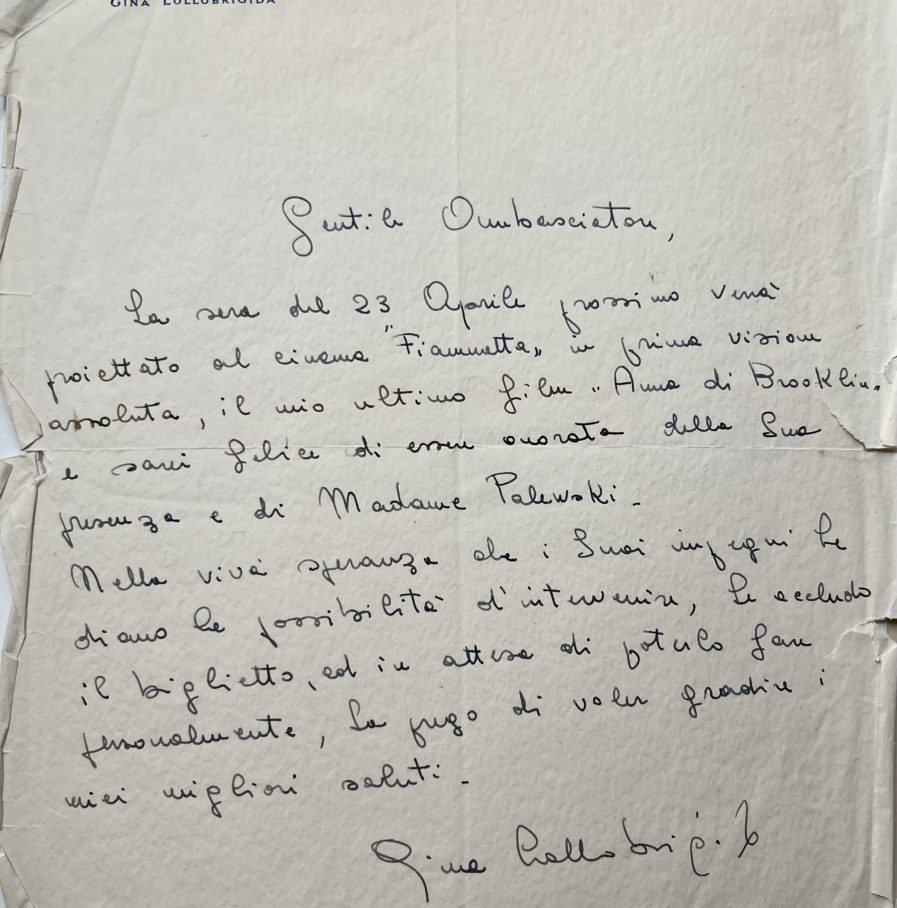 GINA LOLLOBRIGIDA
Gentile Ambasciatore,
La sera del 23 Aprile prossimo verrà
proiettato al cinema "Fiammetta" in prima visione
assoluta, il mio ultimo film "Anna di Brooklin"
e sarei felice di essere onorata della Sua
presenza e di Madame Palewski -
Nella viva speranza che i Suoi impegni Le
diano la possibilità d'intervenire, Le accludo
il biglietto, ed in attesa di poterlo fare
personalmente, La prego di voler gradire i
miei migliori saluti -
Gina Lollobrigida